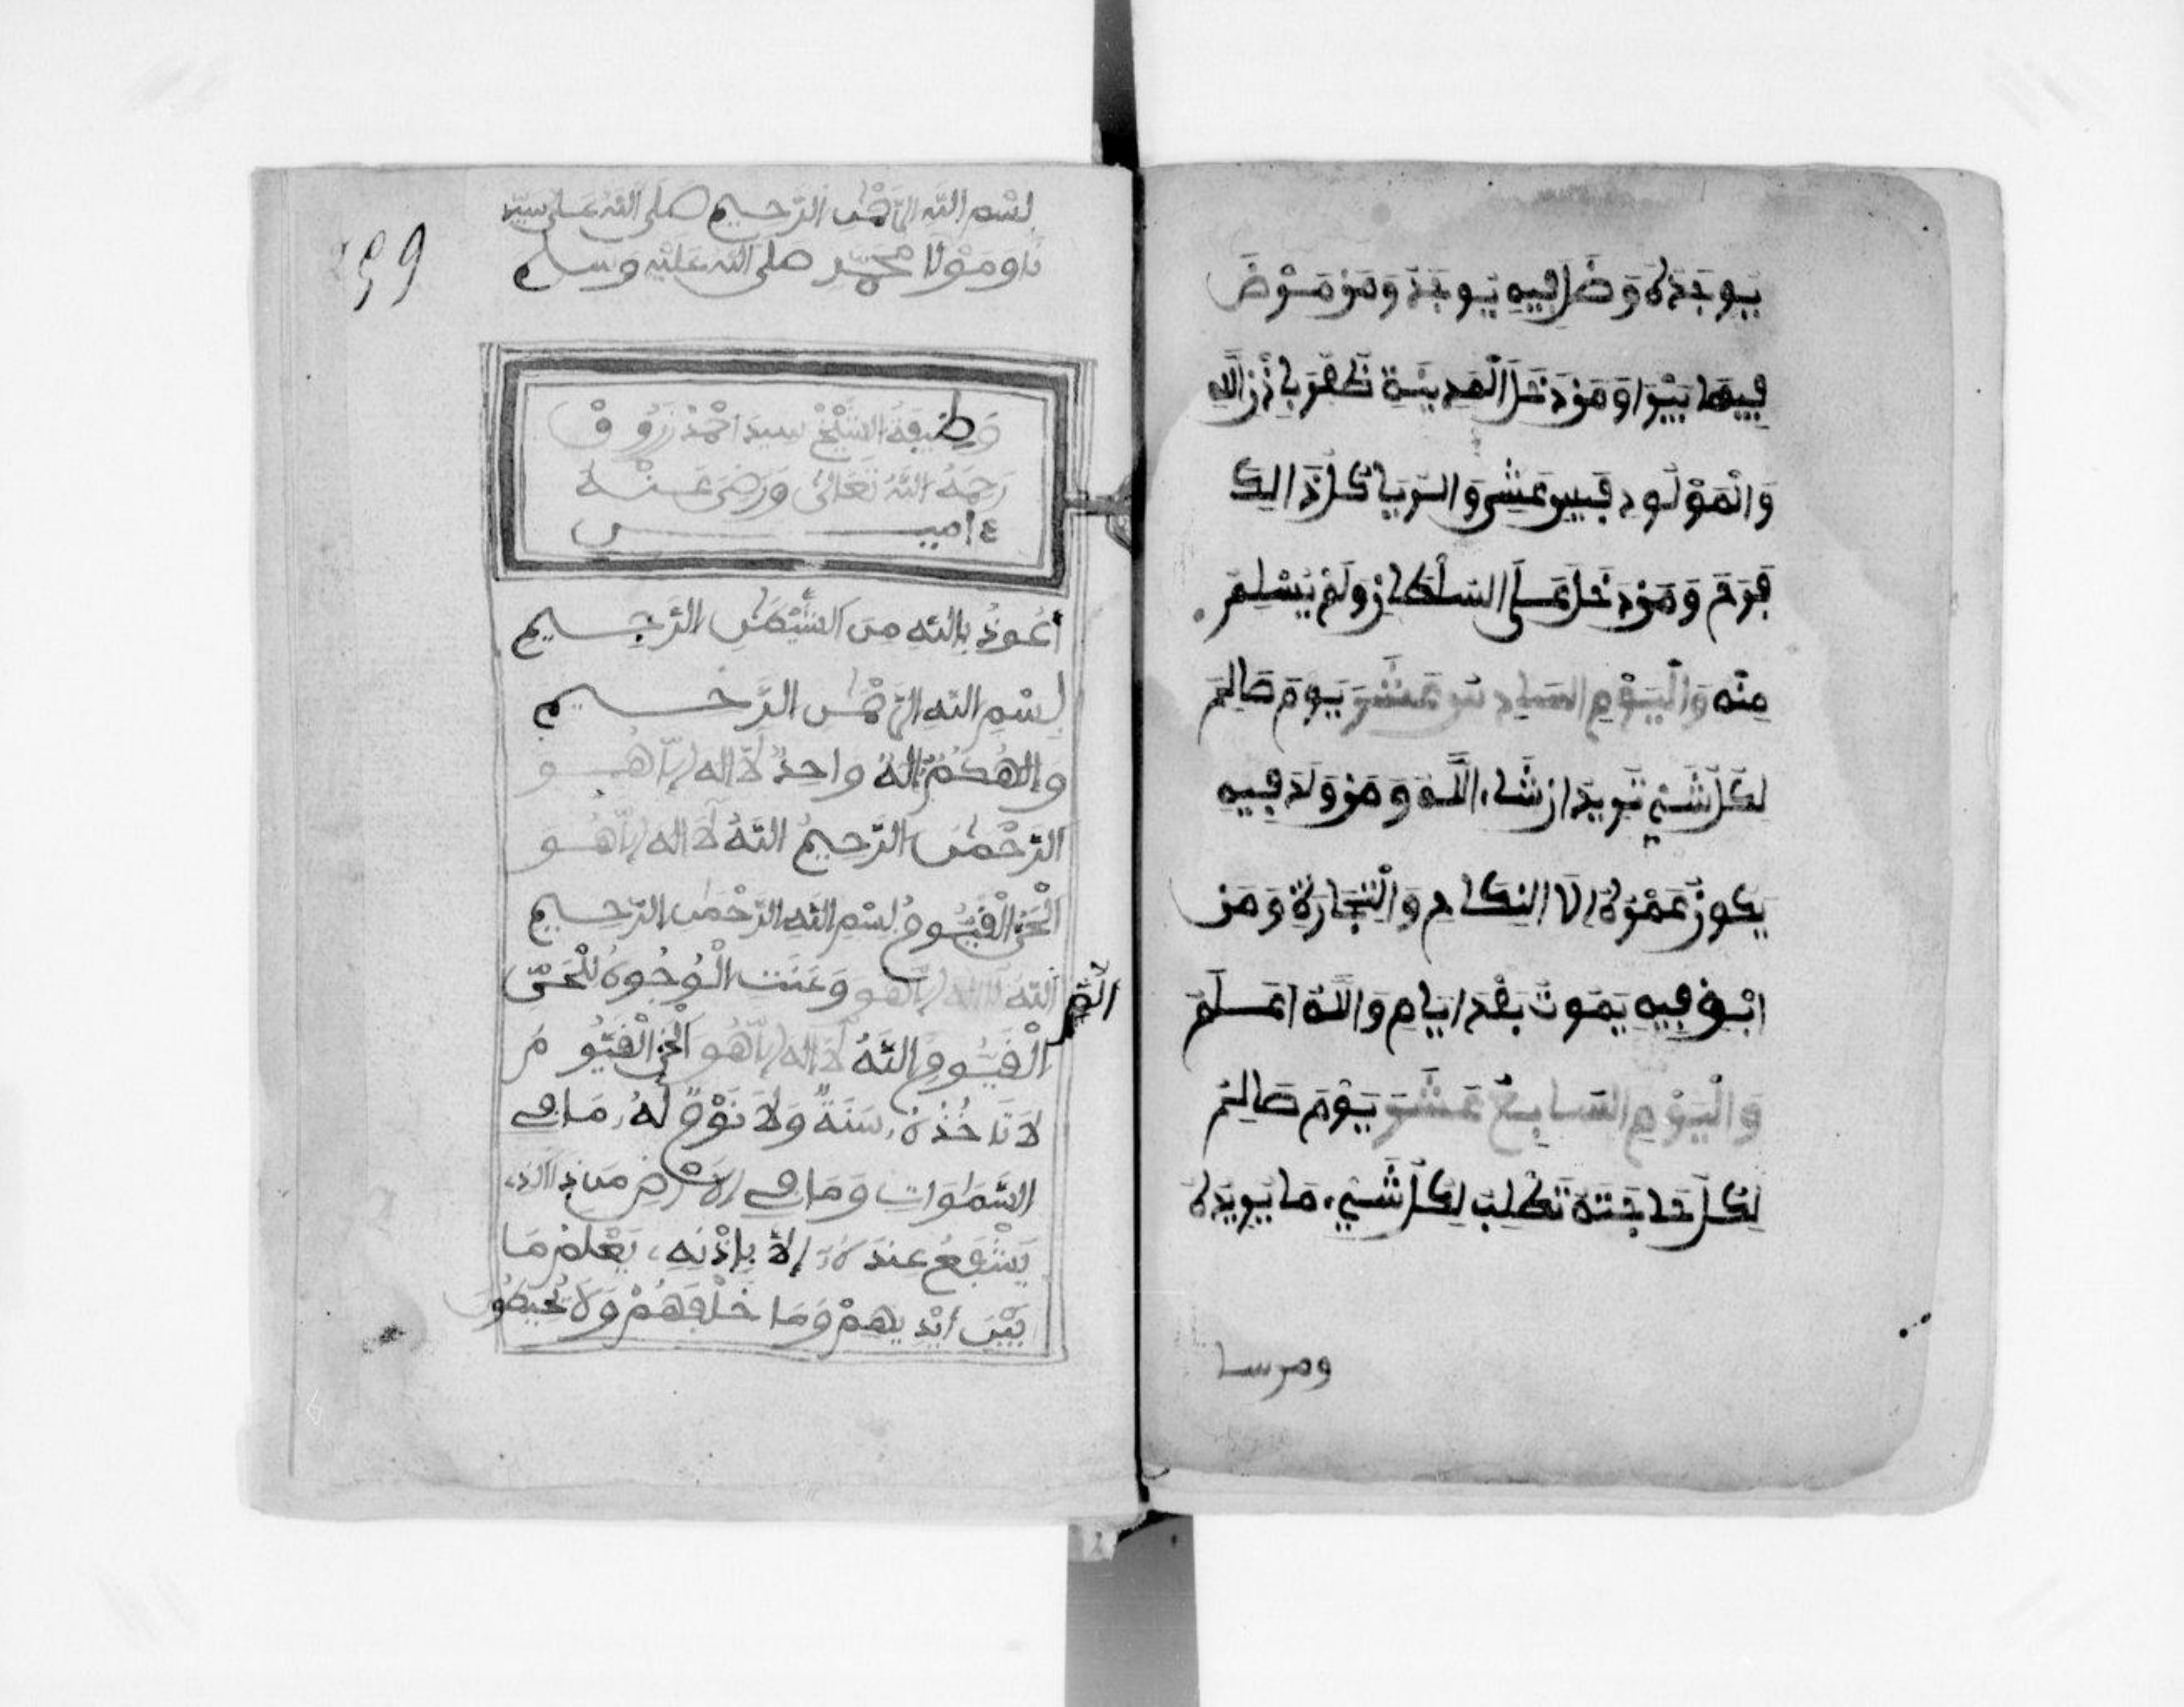 يوجد له وضل فيه يوجد ومن مرض
فيها يبرا ومن دخل المدينة تظفر باذن الله
والمولود فيه عيش والريا كل ذالك
فرح ومن دخل على السلطان ولم يسلم
منه واليوم السادس عشر يوم صالح
لكل شيء تريد ان شاء الله ومن ولد فيه
يكون عمره الا النكاح والتجارة ومن
ابق فيه يموت بعد ايام والله اعلم
واليوم السابع عشر يوم صالح
لكل حاجته تطلب لكل شيء ما يريد له
ومن سا
699
بسم الله الرحمن الرحيم صلى الله على سيد
نا ومولانا محمد صلى الله عليه وسلم
وظيفة الشيخ سيد احمد زروق
رحمه الله تعالى ورضي عنه
ءامين
أعوذ بالله من الشيطن الرجيم
بسم الله الرحمن الرحيم
وإلهكم إله واحد لا اله إلا هو
الرحمن الرحيم الله لا اله إلا هو
الحي القيوم بسم الله الرحمن الرحيم
الم
الله لا اله إلا هو وعنت الوجوه للحي
القيوم الله لا اله إلا هو الحي القيوم
لا تاخذه سنة ولا نوم له ما في
السموات وما في الارض من ذا الذي
يشفع عنده إلا بإذنه يعلم ما
بين أيديهم وما خلفهم ولا يحيطون